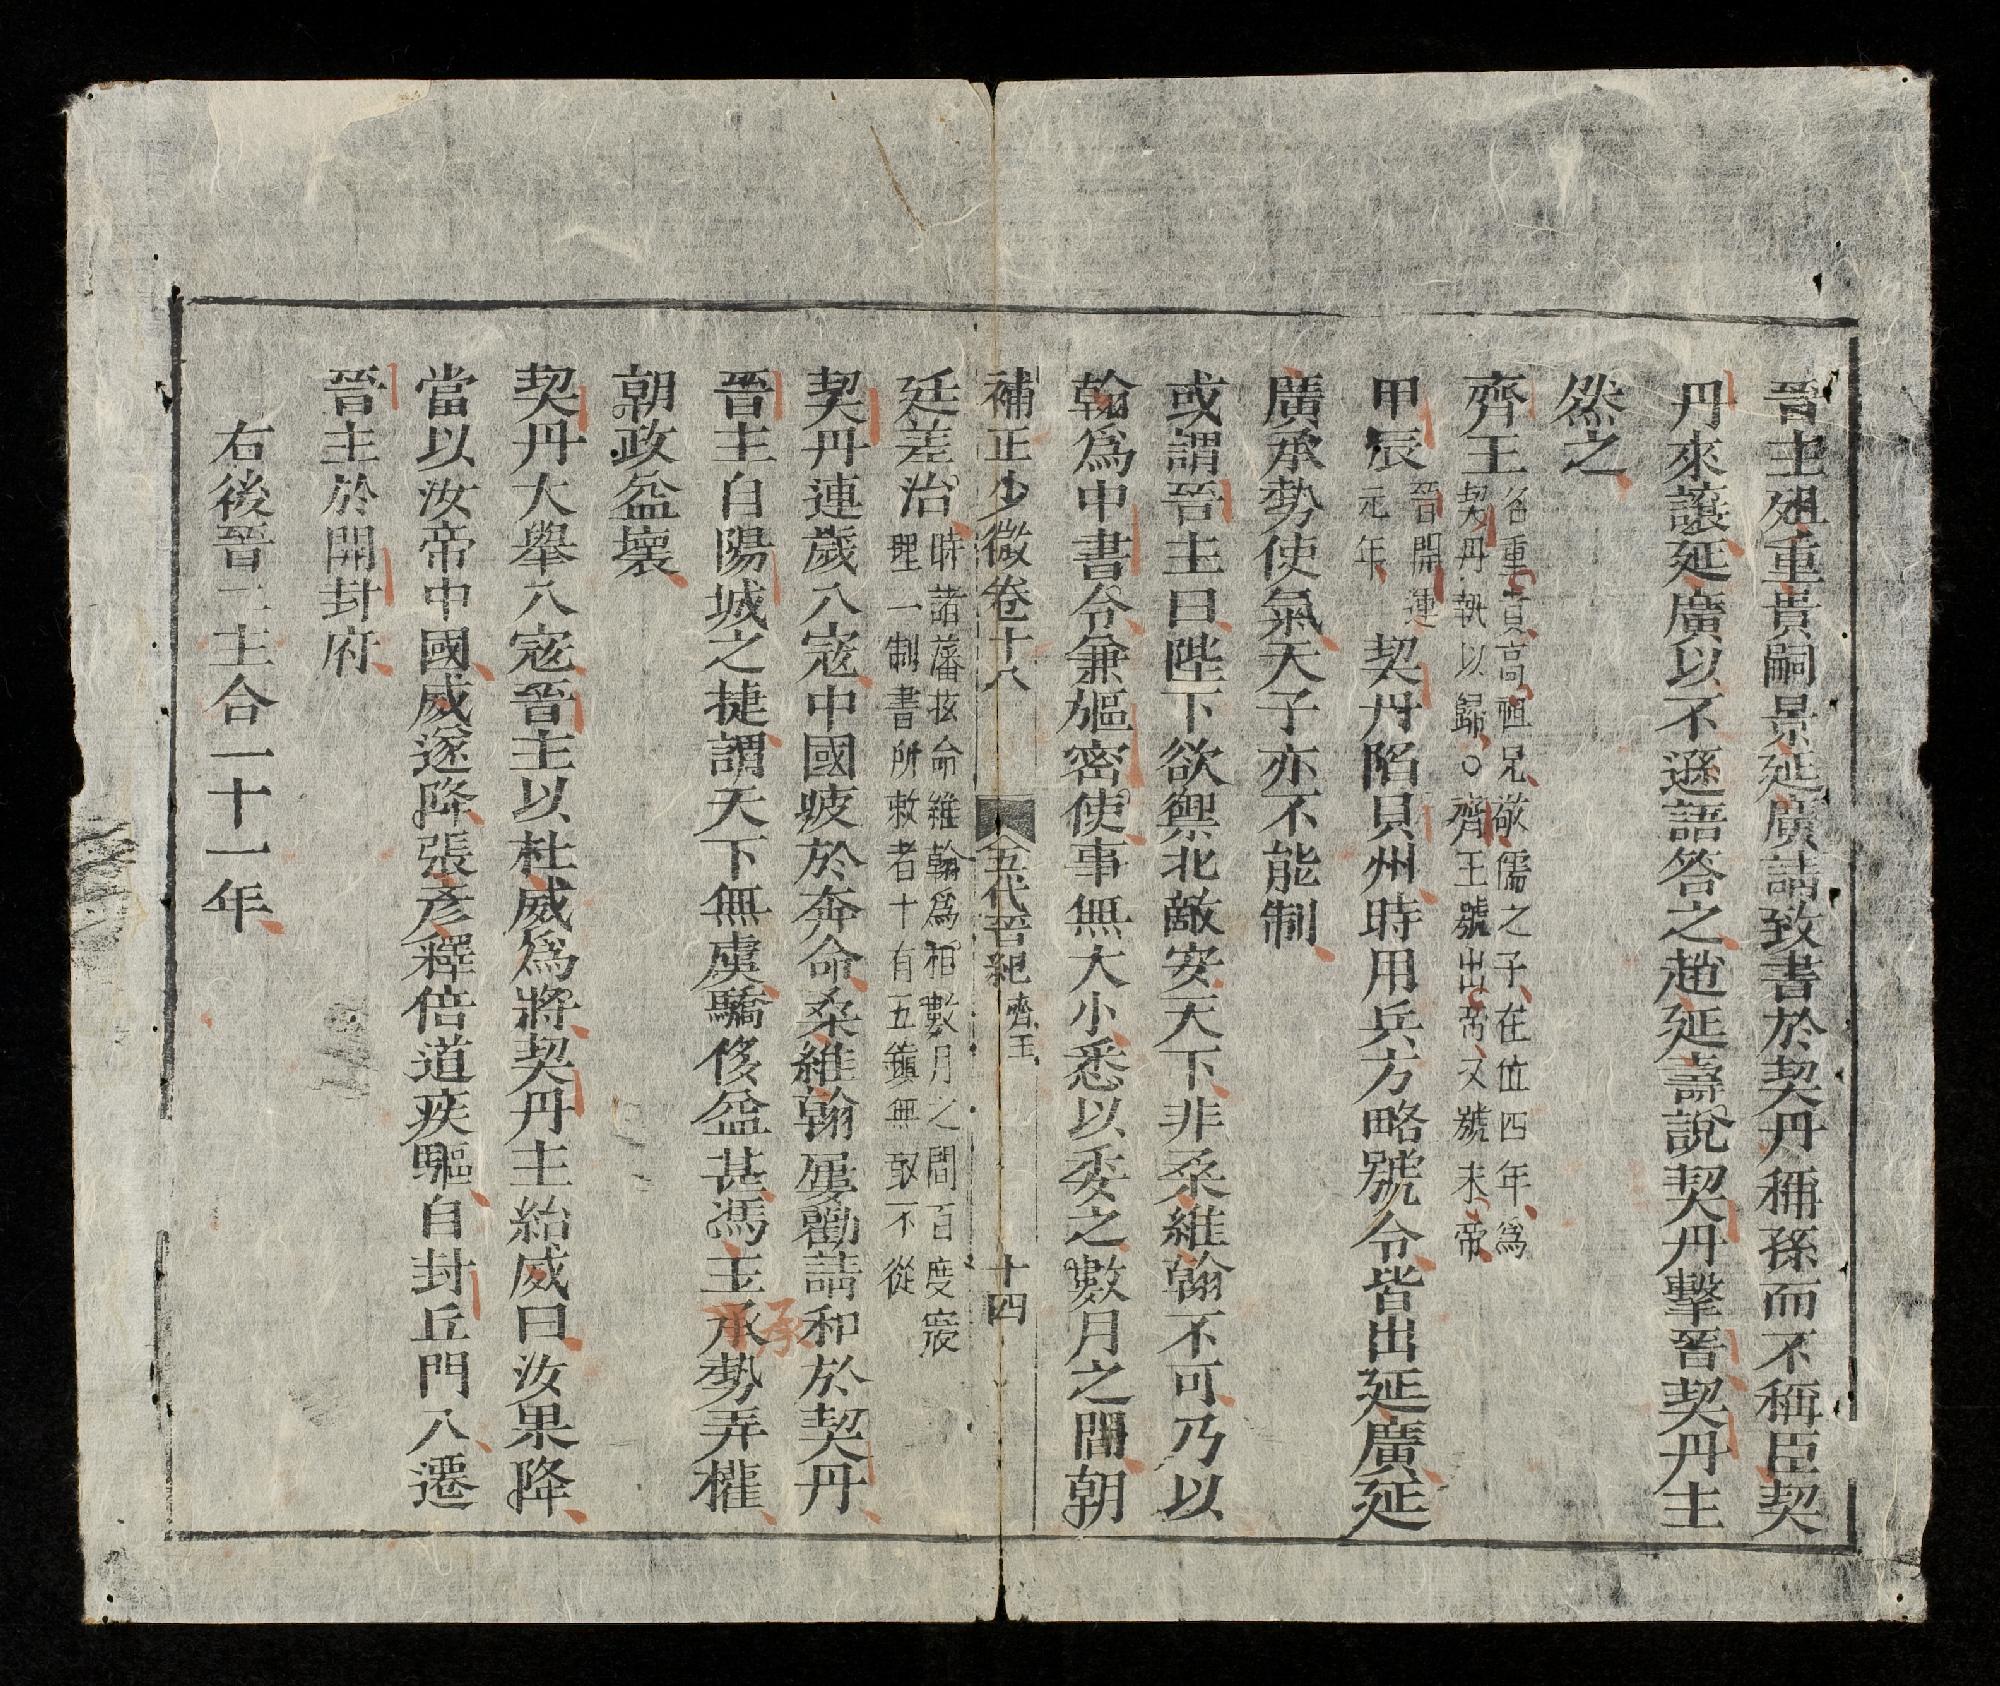 晉主殂重貴嗣景延廣請致書於契丹稱孫而不稱臣契
丹來讓延廣以不遜語答之趙延壽說契丹擊晉契丹主
然之
齊王
名重貴高祖兄敬儒之子在位四年為
契丹執以歸○齊王號出帝又號末帝
甲辰
晉開運
元年
契丹陷貝州時用兵方略號令皆出延廣延
廣承勢使氣天子亦不能制
或謂晉主曰陛下欲禦北敵安天下非桑維翰不可乃以
翰爲中書令兼樞密使事無大小悉以委之數月之間朝
補正少微卷十八
五代晉紀
齊王
十四
廷差治
時諸藩拔命維翰爲相數月之間百度寖
理一制書所敕者十有五鎮無敢不從
契丹連歲入寇中國疲於奔命桑維翰屢勸請和於契丹
晉主自陽城之捷謂天下無虞驕侈益甚馮玉承勢弄權
承
朝政益壞
契丹大舉入寇晉主以杜威爲將契丹主紿威曰汝果降
當以汝帝中國威遂降張彥釋倍道疾驅自封丘門入遷
晉主於開封府
右後晉二主合一十一年